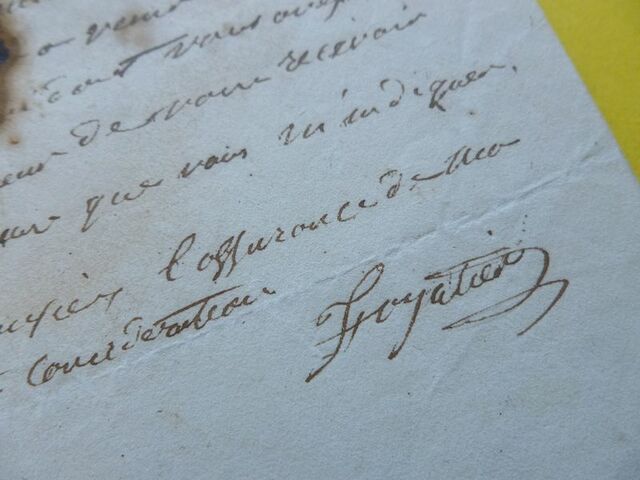 a
dont vous avez
de vous recevoir
que vous m'indiquer,
l'assurance de ma
Considération Foyatier